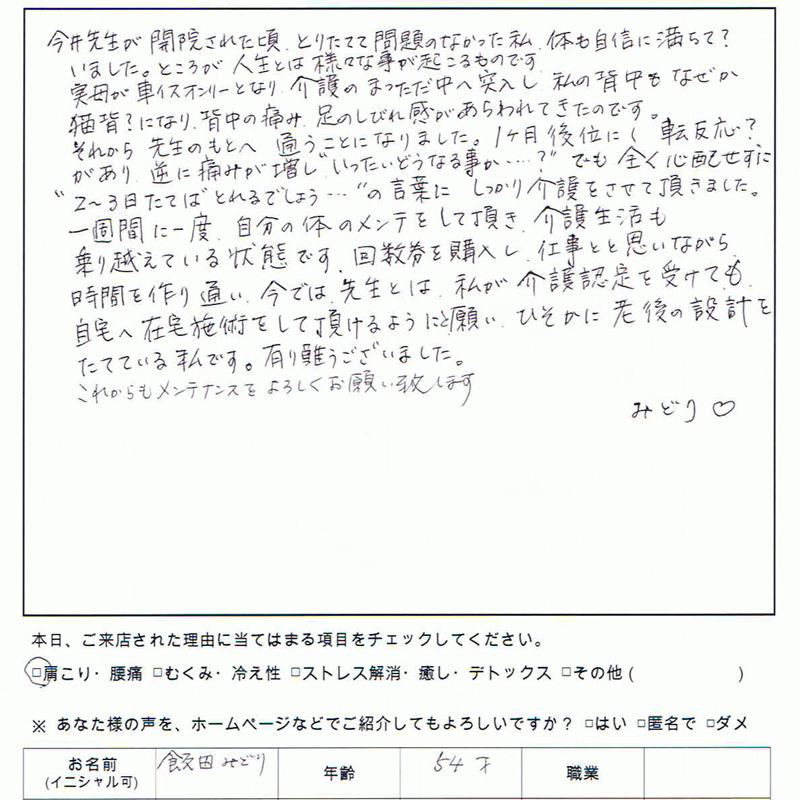 今井先生が開院された頃、とりたてて問題のなかった私、体も自信に満ちて?
いました。ところが人生とは様々な事が起こるものです
実母が車イスオンリーとなり、介護のまっただ中へ突入し、私の背中もなぜか
猫背?になり、背中の痛み、足のしびれ感があらわれてきたのです。
それから先生のもとへ通うことになりました。1ヶ月後位に(転反応?
があり、逆に痛みが増し"いったいどうなる事か……?"でも全く心配せずに
"2〜3日たてばとれるでしょう…"の言葉にしっかり介護をさせて頂きました。
一週間に一度、自分の体のメンテをして頂き、介護生活も
乗り越えている状態です。回数券を購入し、仕事とと思いながら、
時間を作り通い、今では、先生とは、私が介護認定を受けても、
自宅へ在宅施術をして頂けるようにと願い、ひそかに老後の設計を
たてている私です。有り難うございました。
これからもメンテナンスをよろしくお願い致します
みどり♡
本日、ご来店された理由に当てはまる項目をチェックしてください。
□肩こり・腰痛 □むくみ・冷え性 □ストレス解消・癒し・デトックス □その他( )
※ あなた様の声を、ホームページなどでご紹介してもよろしいですか? □はい □匿名で □ダメ
お名前 飯田みどり 年齢 54才 職業
(イニシャル可)